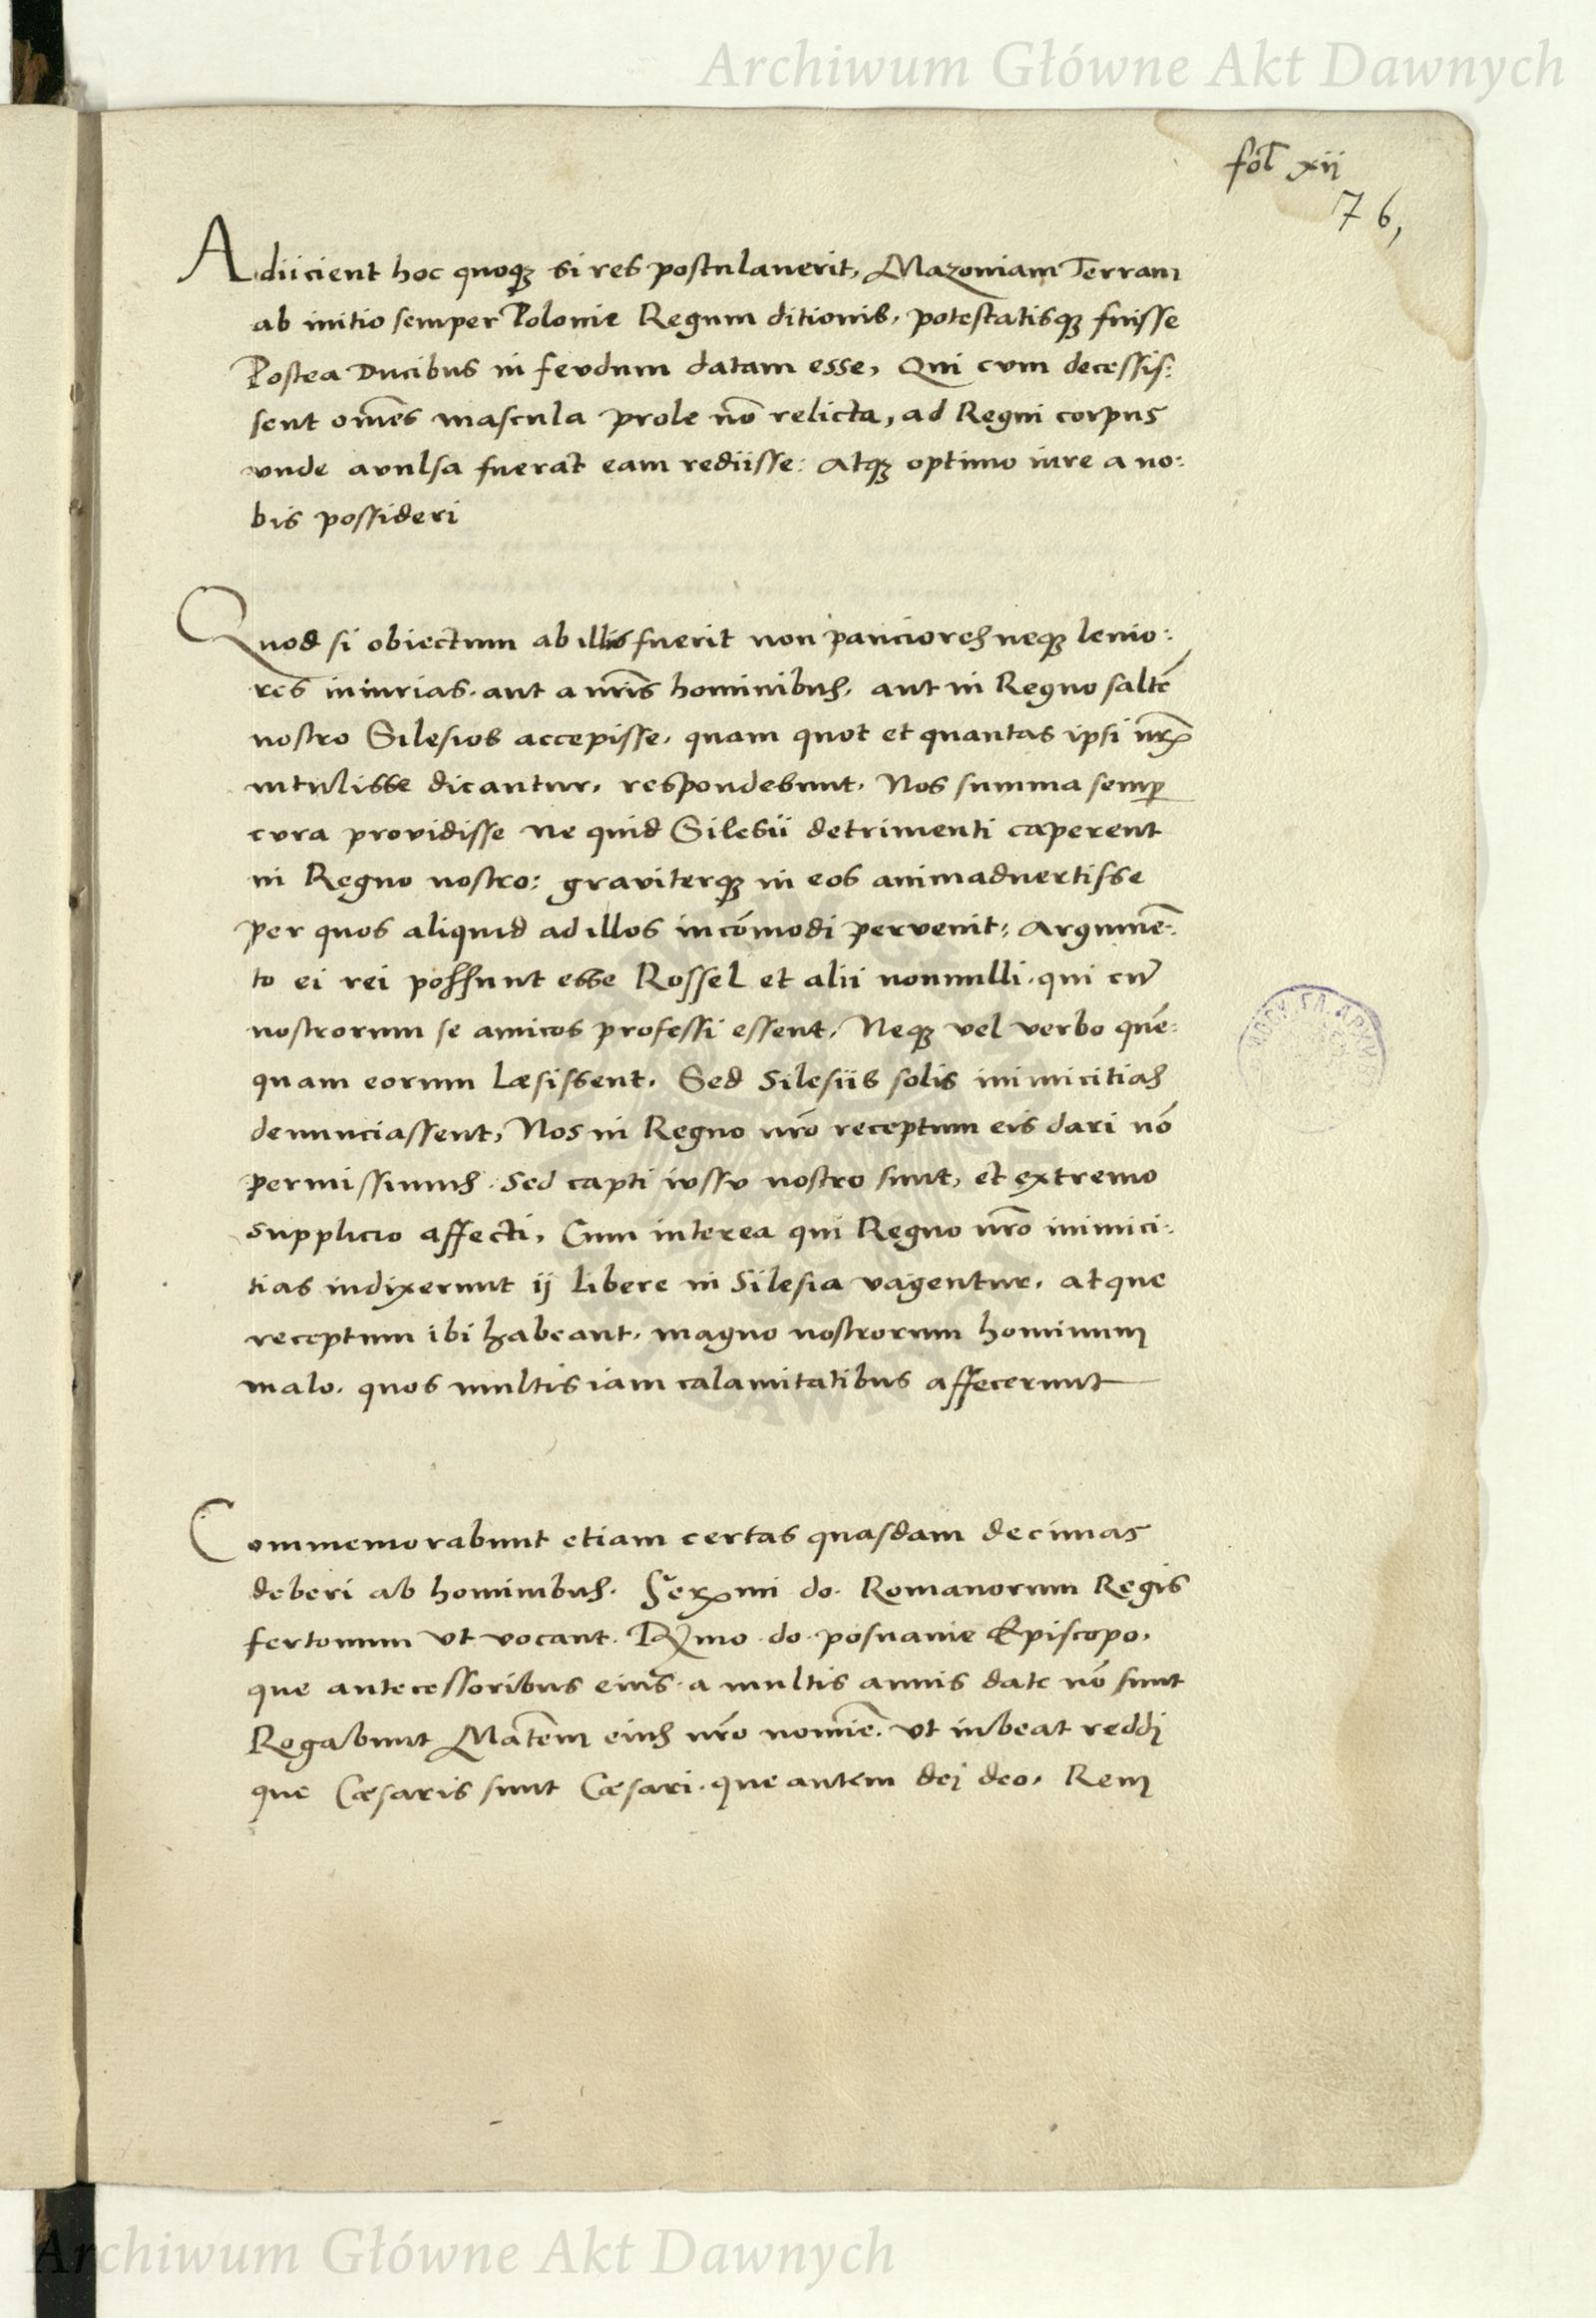 Archiwum Główne Akt Dawnych
fol xij
76,
Adiicient hoc quoq₃ si res postulauerit, Mazouiam Terram
ab initio semper Polonie Regum ditionis, potestatisq₃ fuisse
Postea Ducibus in feudum datam esse, Qui cum decessis:
sent om̄es mascula prole nō relicta, ad Regni corpus
vnde auulsa fuerāt eam rediisse: atq₃ optimo iure a no:
bis possideri
Quod si obiectum ab illis fuerit non pauciores neq₃ lenio:
res iniurias. aut a nr̄is hominibus, aut in Regno saltē
nostro Silesios accepisse, quam quot et quantas ipsi nr̄is
intulisse dicantur, respondebunt, Nos summa semꝑ
cura prouidisse ne quid Silesii detrimenti caperent
in Regno nostro: grauiterq₃ in eos animaduertisse
per quos aliquid ad illos incōmodi peruenit: argumē:
to ei rei possunt esse Rossel et alii nonnulli, qui cū
nostrorum se amicos professi essent, Neq₃ vel verbo quē:
quam eorum læsissent, Sed Silesiis solis inimicitias
denunciassent, Nos in Regno nr̄o receptum eis dari nō
permissimus. Sed capti iussu nostro sunt, et extremo
supplicio affecti, Cum interea qui Regno nr̄o inimici:
tias indixerunt ij libere in Silesia vagentur, atque
receptum ibi habeant, magno nostrorum hominum
malo, quos multis iam calamitatibus affecerunt
Commemorabunt etiam certas quasdam decimas
deberi ab hominibus. Ser̄mi do. Romanorum Regis
fertonum vt vocant. R̄mo. do. posnanie Episcopo,
que antecessoribus eius. a multis annis date nō sunt
Rogabunt Mat̄em eius nr̄o nomīe. vt iubeat reddi
que Cæsaris sunt Cæsari. que autem dei deo, Rem
Archiwum Główne Akt Dawnych